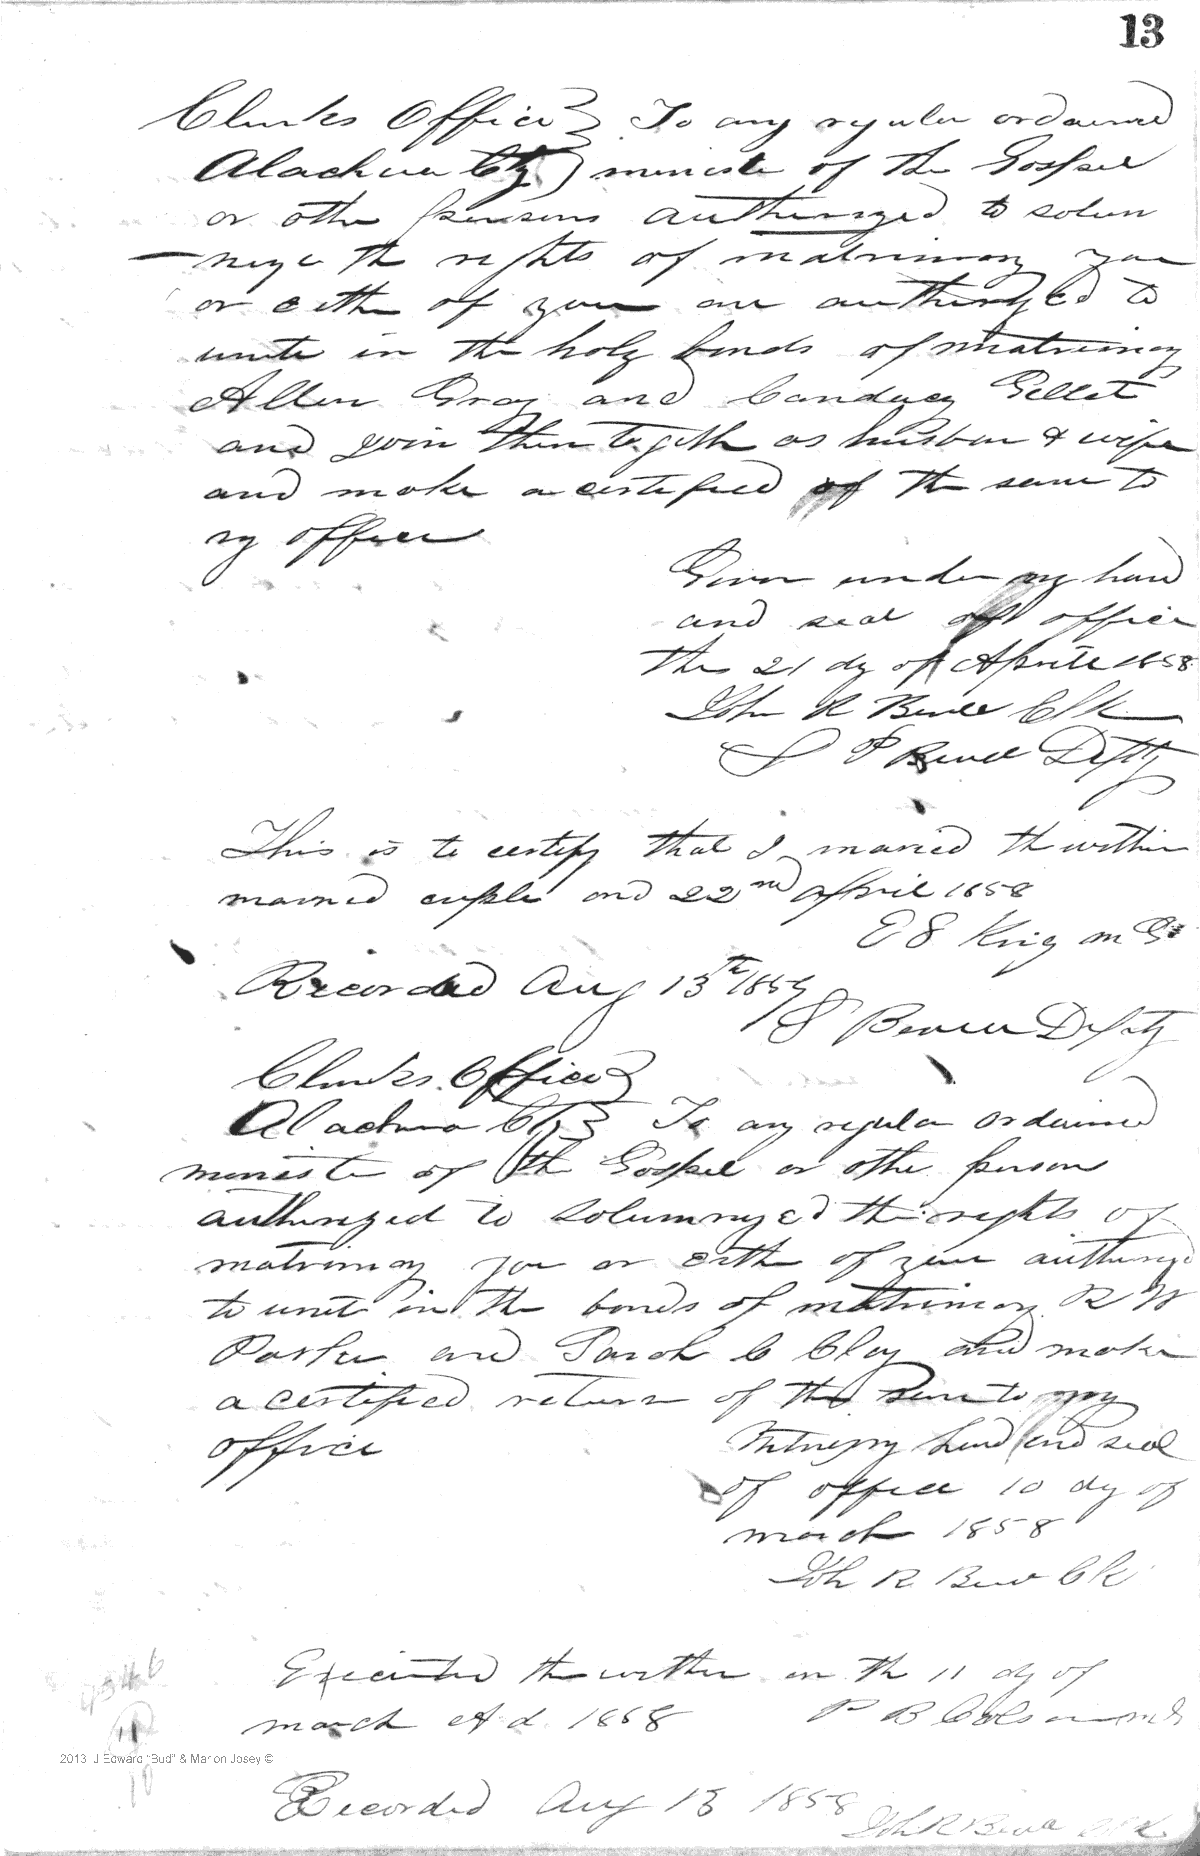 13
Clerks Office } To any regular ordained
Alachua Cty } ministe of the Gospel
or othe persons authorized to solem
nize th rights of matrimony you
or eithe of you are authorized to
unite in the holy bonds of matrimony
Allen Gray and Candacy Gellet
and join them togeth as husban & wife
and make a certified of the same to
my office
Given under my hand
and seal of office
this 21 dy of Aprile 1858
John R Bevill Clk
S P Bevill Dpty
This is to certify that I maried th within
married cuple ond 22nd april 1858
E S King m G
Recorded Aug 13th 185
S Bevill Dpty
Clerks Office }
Alachua Cty } To any regula ordained
ministe of the Gospel or othe person
authorized to solumnyzed the rights of
matrimoy you or eithe of you authorized
to unite in the bonds of matrimony R W
Parker and Sarah C Clay and make
a certified return of the same to my
office
Witness my hand and seal
of office 10 dy of
march 1858
Joh R Bevill Clk
Executed the within on th 11 dy of
march A d 1858 P B Colson m G
2013 J Edward "Bud" & Marion Josey ©
11
10
Recorded Aug 13 1858
Joh R Bevill Clk